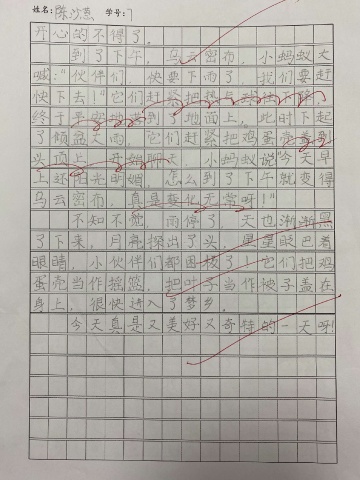 姓名：陈 学号：7
开心的不得了。
到了下午，乌云密布，小蚂蚁大
喊："伙伴们，快要下雨了，我们要赶
快下去！"它们赶紧把热气球往下降，
终于平安地来到了地面上，此时下起
了倾盆大雨，它们赶紧把鸡蛋壳盖到
头顶上，开始聊天。小蚂蚁说"今天早
上还阳光明媚，怎么到了下午就变得
乌云密布，真是变化无常呀！"
不知不觉，雨停了，天也渐渐黑
了下来，月亮探出了头，星星眨巴着
眼睛，小伙伴们都困极了！它们把鸡
蛋壳当作摇篮，把叶子当作被子盖在
身上，很快进入了梦乡。
今天真是又美好又奇特的一天呀！